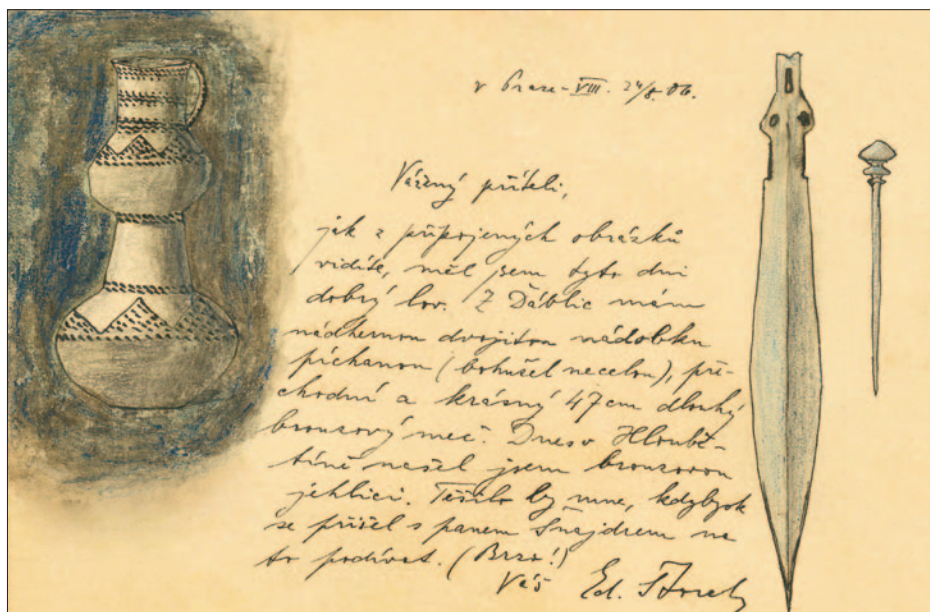 v Praze-VIII. 24/8. 06.
Vážený příteli,
jak z připojených obrázků
vidíte, měl jsem tyto dni
dobrý lov. Z Ďáblic mám
nádhernou dvojitou nádobku
píchanou (bohužel necelou), pří-
chodní a krásný 47 cm dlouhý
bronzový meč. Dnes v Hloubě-
tíně našel jsem bronzovou
jehlici. Těšilo by mne, kdybyste
se přišel s panem Šnajdrem na
to podívat. (Brzo!)
Váš Ed. Storch